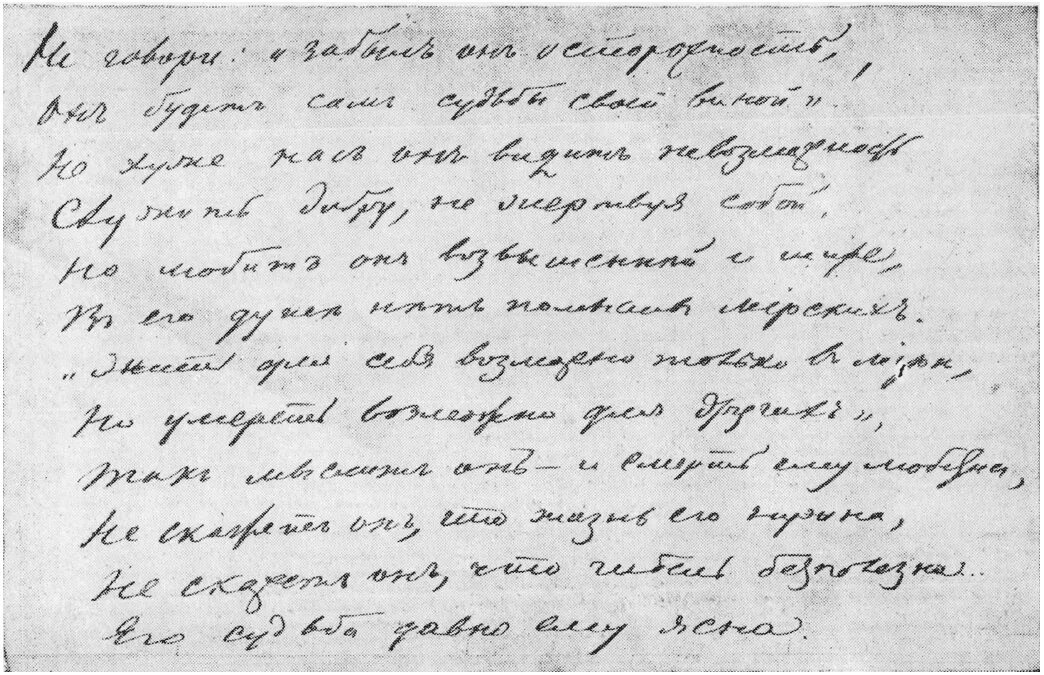 Не говори: „забылъ онъ осторожность,
Онъ будетъ самъ судьбы своей виной".
Не хуже насъ онъ видитъ невозможность
Служить добру, не жертвуя собой.
Но любитъ онъ возвышенней и шире,
Въ его душѣ нѣтъ помысловъ мірскихъ.
„Жить для себя возможно только въ мірѣ,
Но умереть возможно для другихъ",
Такъ мыслитъ онъ — и смерть ему любезна,
Не скажетъ онъ, что жизнь его нужна,
Не скажетъ онъ, что гибель безполезна..
Его судьба давно ему ясна.